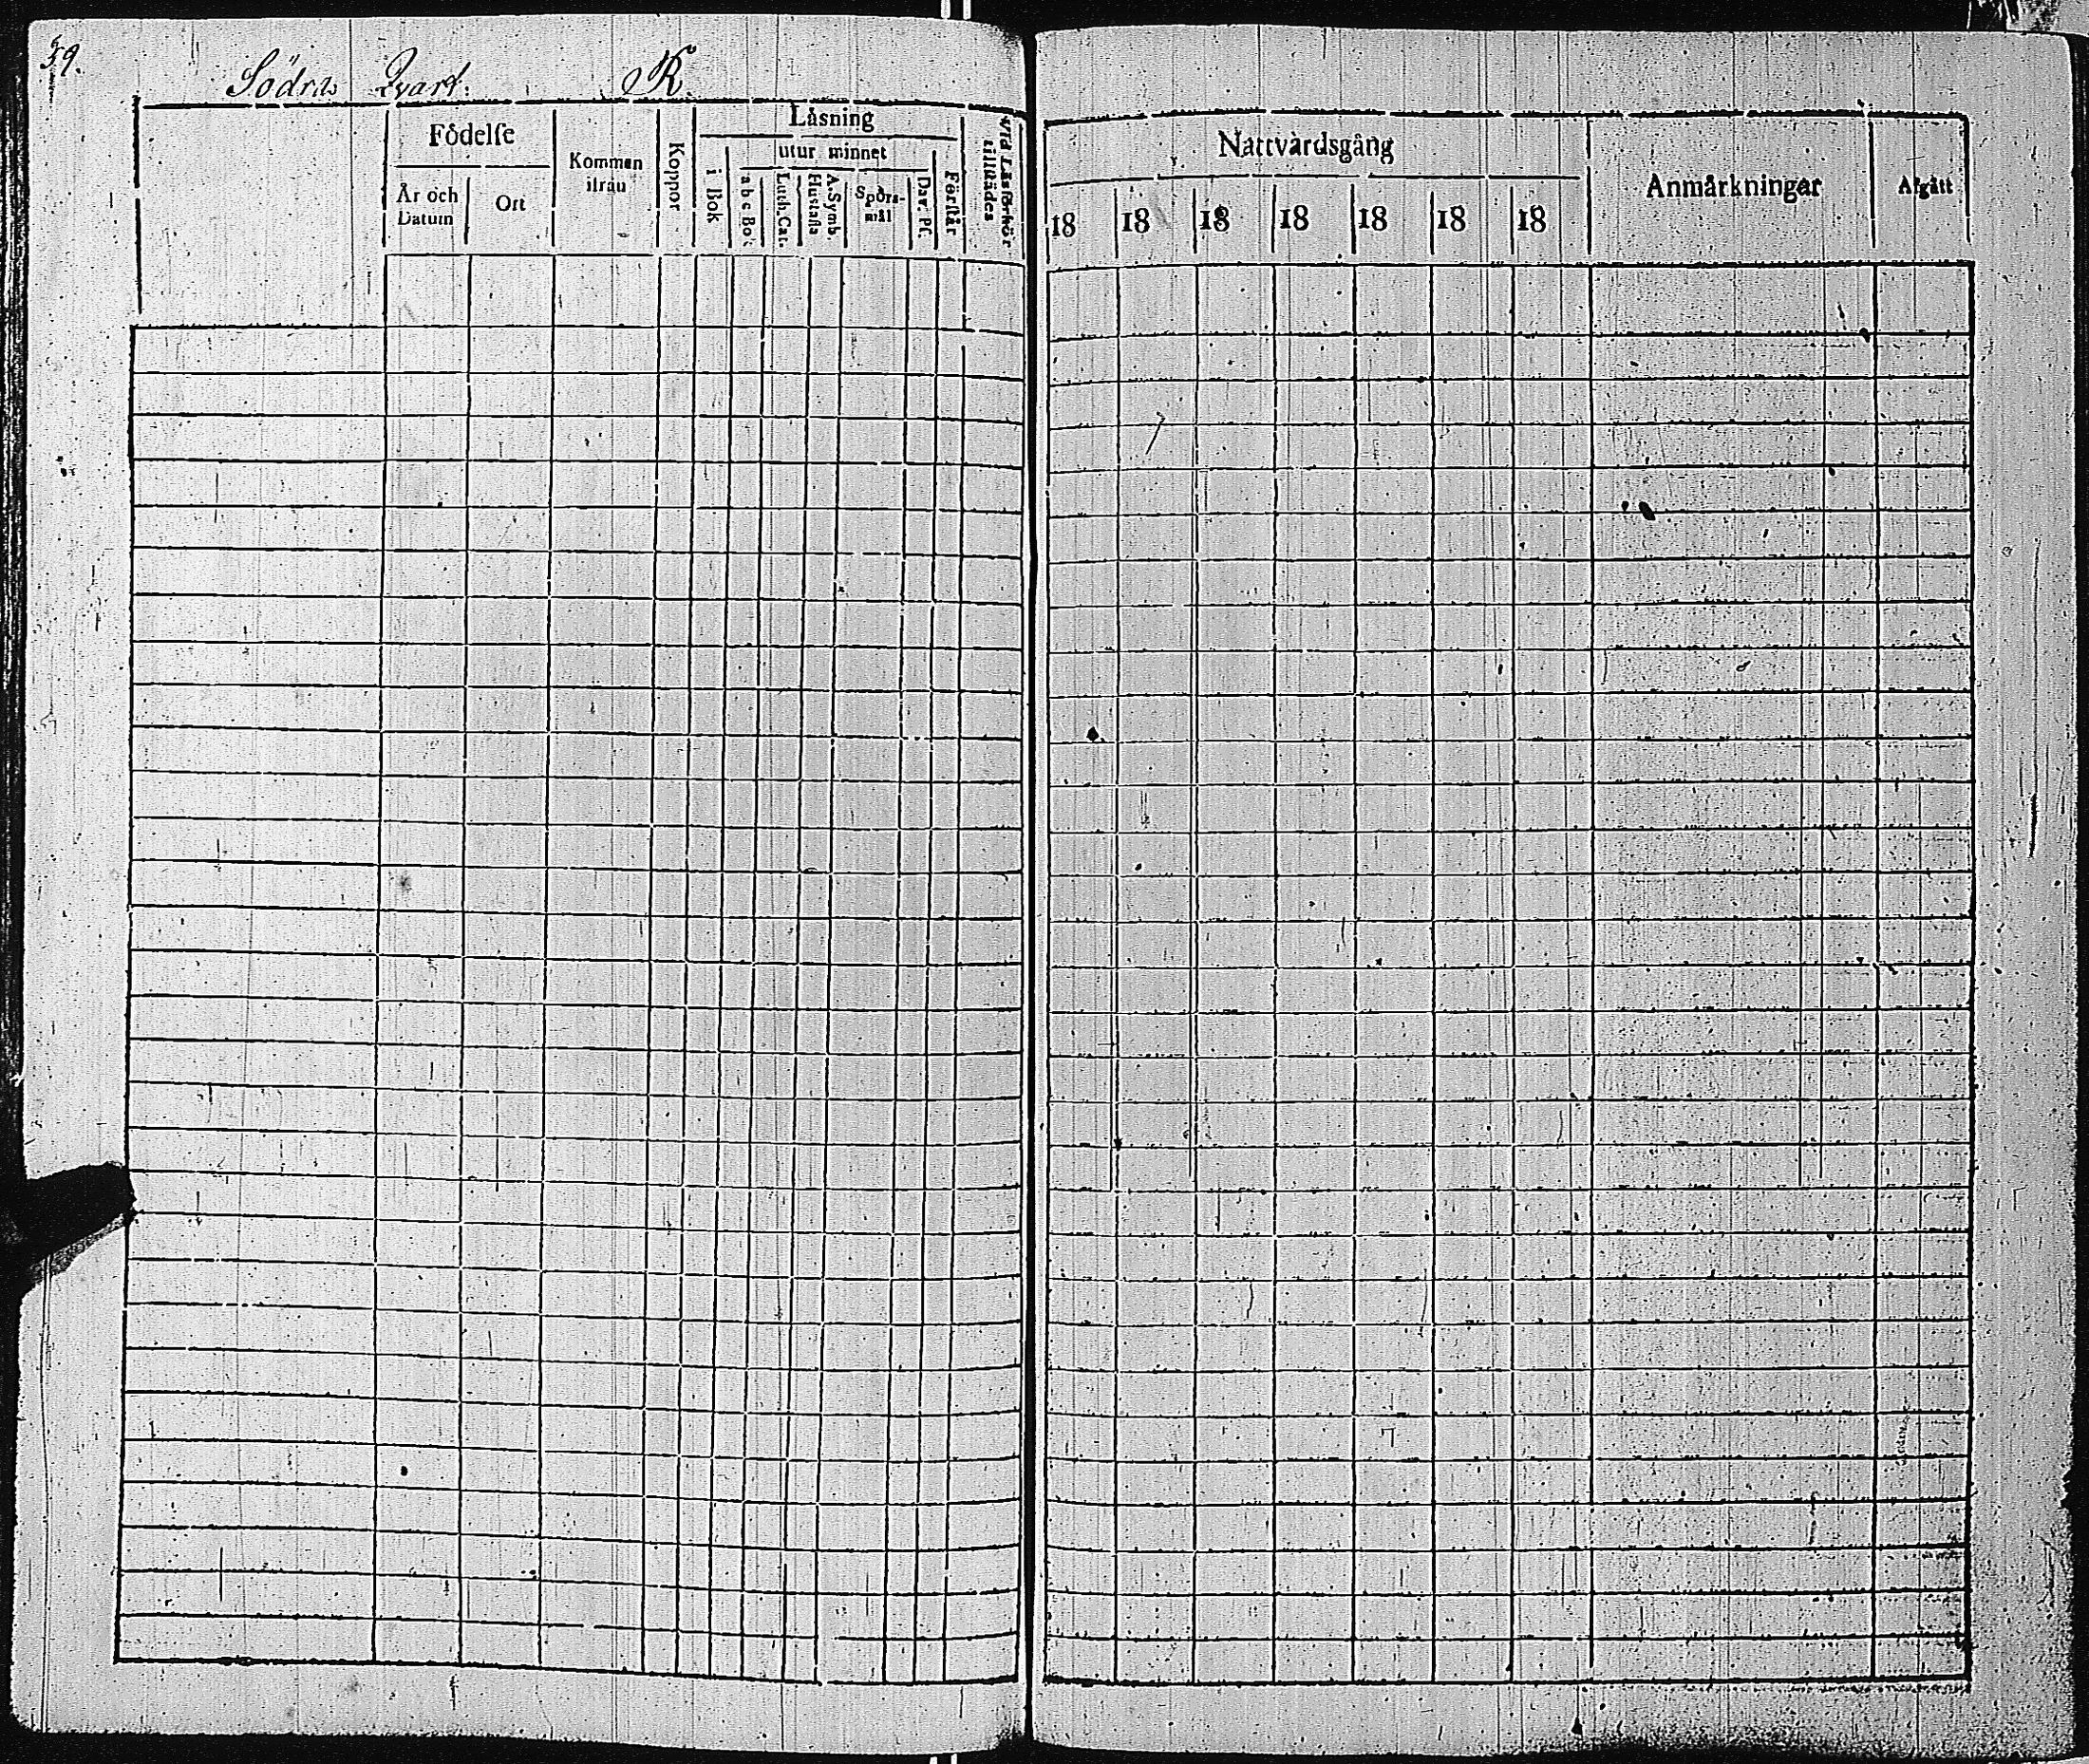 59.
Södra Qvart. K.
Födelse
År och Datum
Ort
Kommen ifrån
Koppor
Läsning
i Bok
utur minnet
a b c Bok
Luth. Cat.
A. Symb. Hustafla
Spörs-mål
Dav. Ps.
Förstår
vid Läsförhör tillstädes
Nattvardsgång
18 18 18 18 18 18 18
Anmärkningar
Afgått